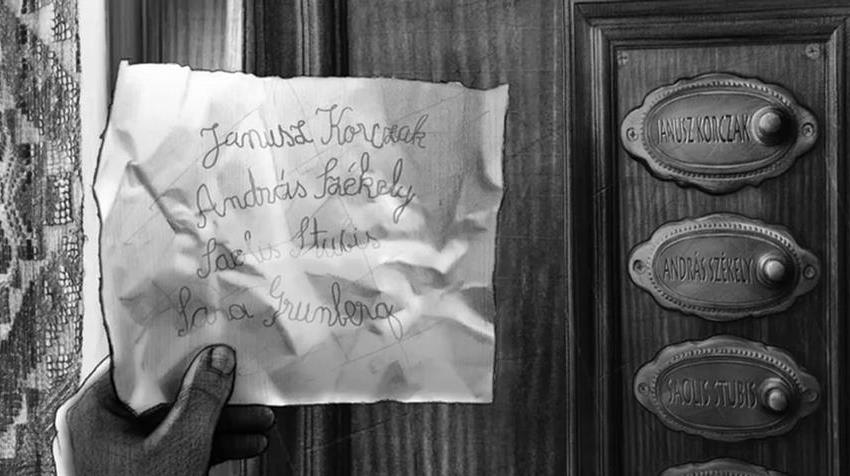 Janusz Korczak
András Székely
Saolis Stubis
Sara Grunberg
JANUSZ KORCZAK
ANDRÁS SZÉKELY
SAOLIS STUBIS